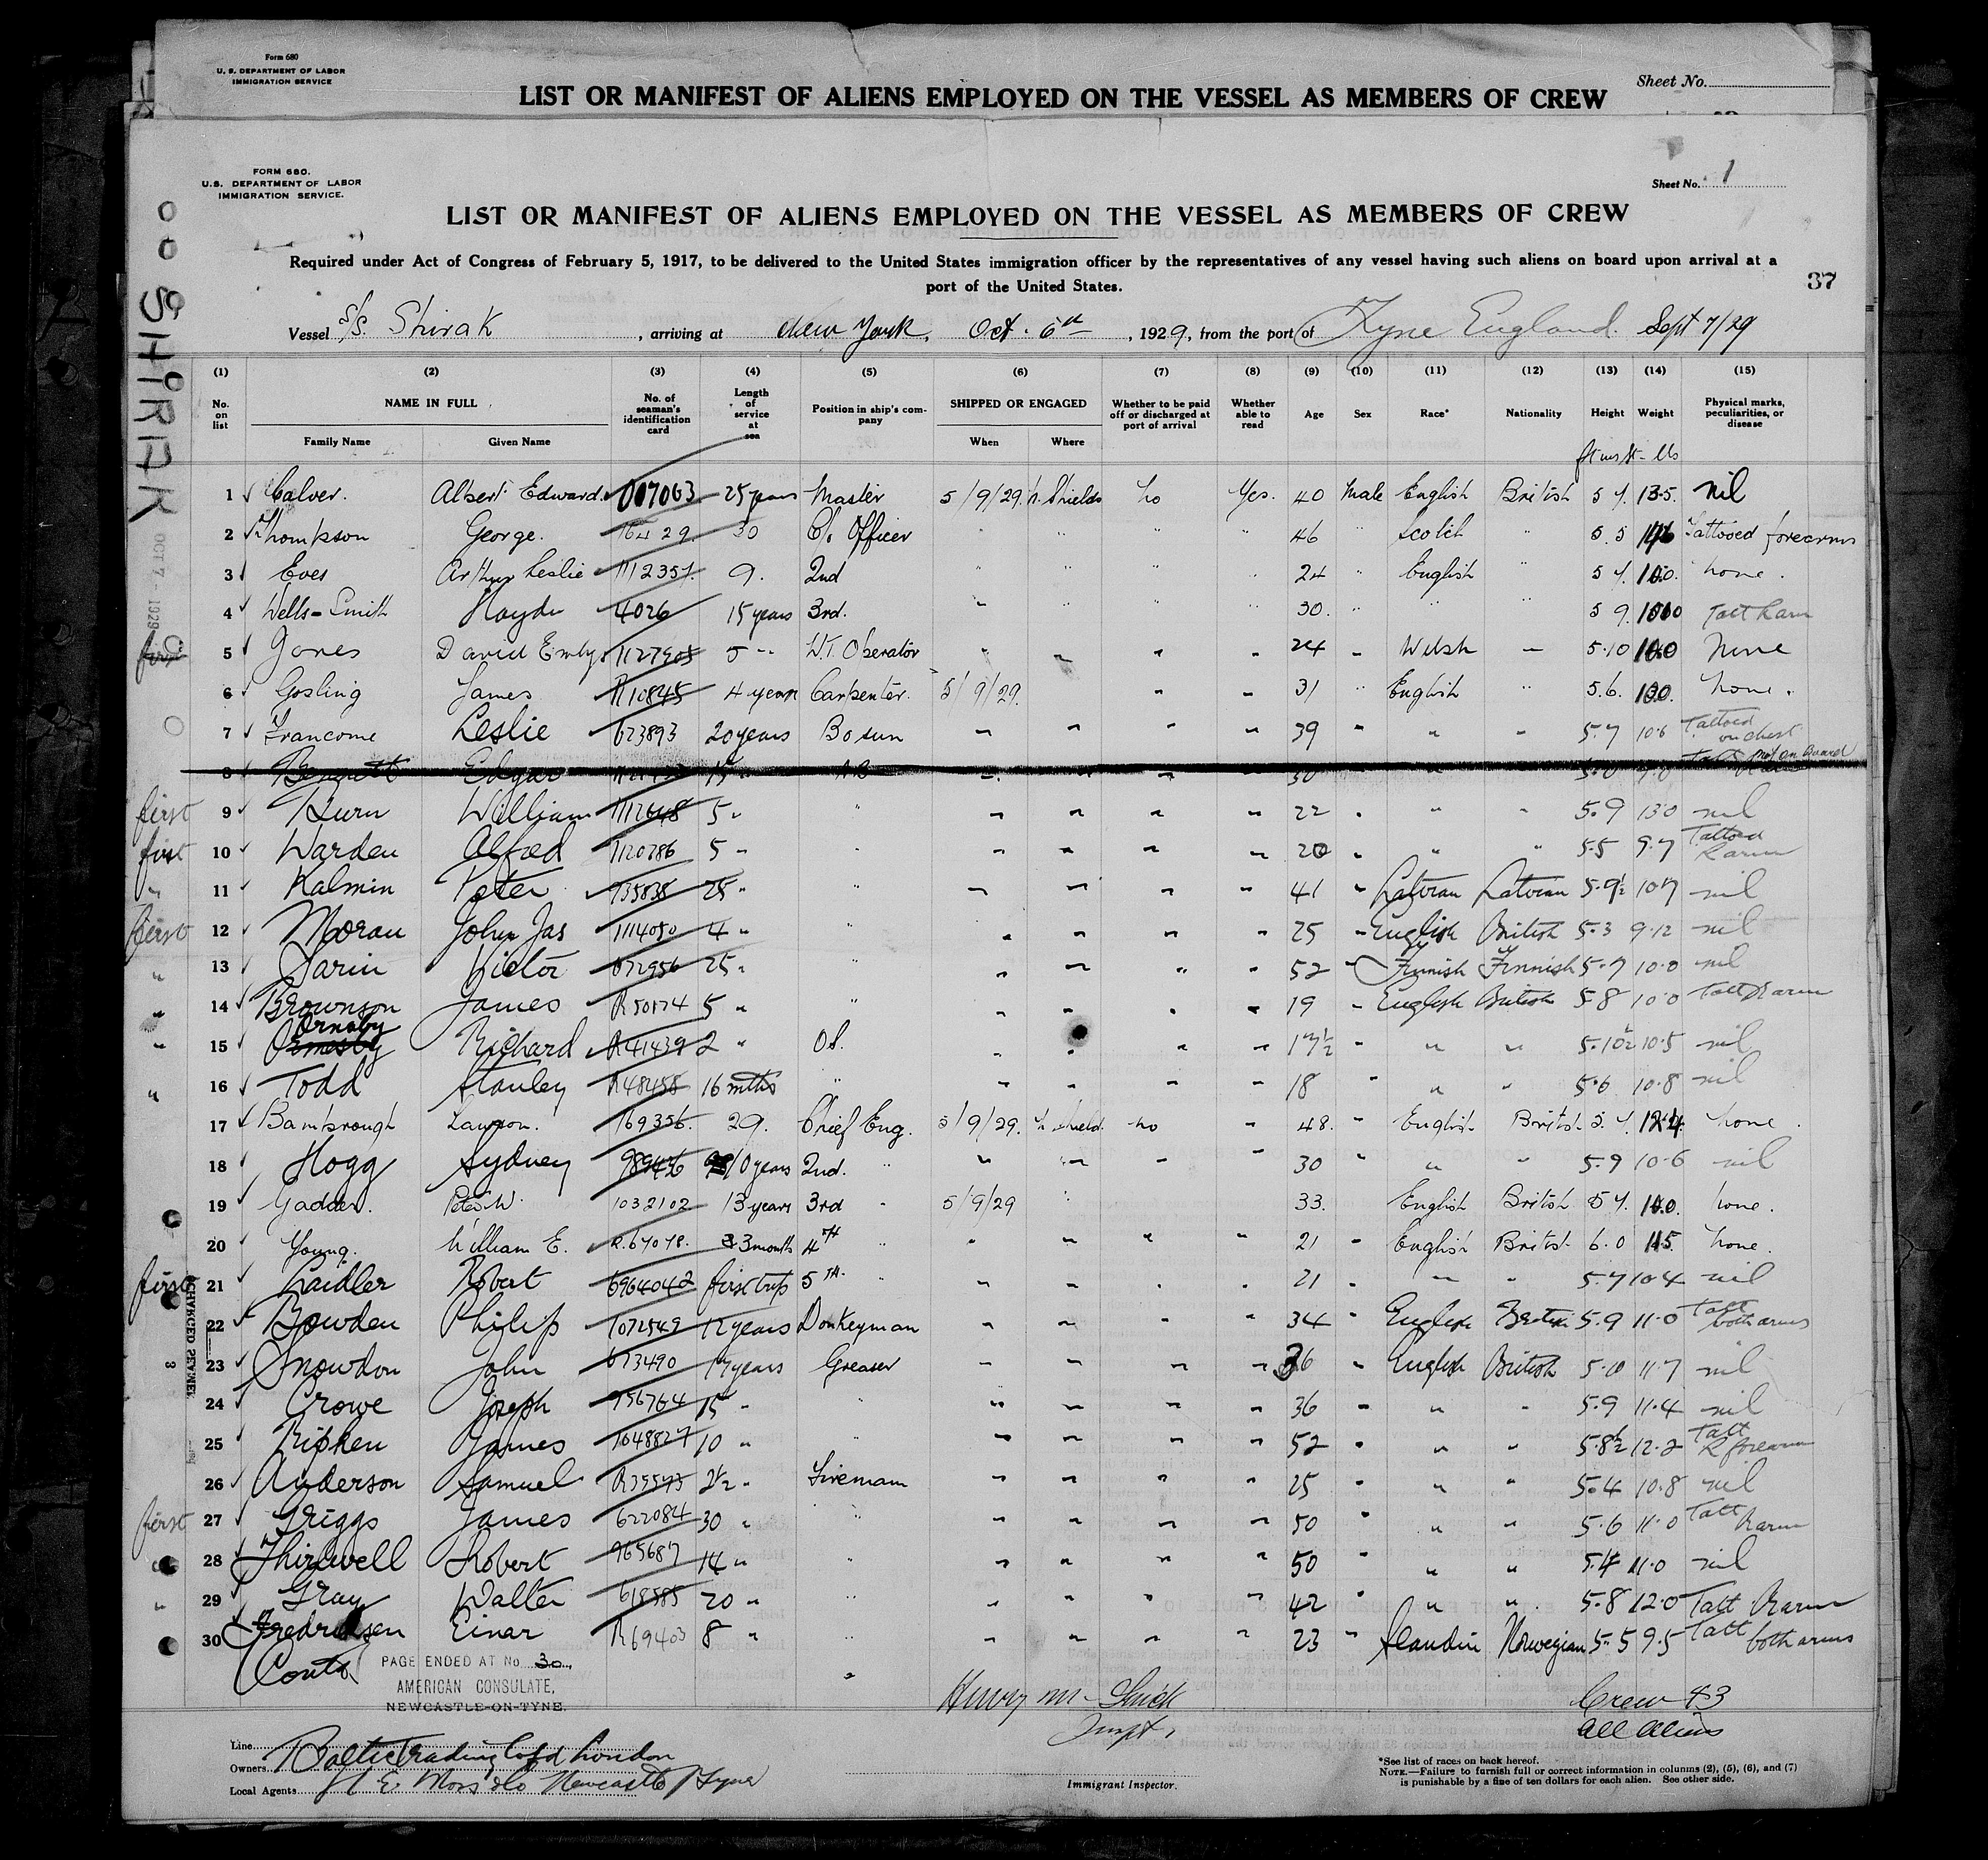 Form 680
U. S. DEPARTMENT OF LABOR
IMMIGRATION SERVICE
Sheet No.
LIST OR MANIFEST OF ALIENS EMPLOYED ON THE VESSEL AS MEMBERS OF CREW
FORM 680.
U.S. DEPARTMENT OF LABOR
IMMIGRATION SERVICE.
Sheet No. 1
LIST OR MANIFEST OF ALIENS EMPLOYED ON THE VESSEL AS MEMBERS OF CREW
Required under Act of Congress of February 5, 1917, to be delivered to the United States immigration officer by the representatives of any vessel having such aliens on board upon arrival at a
port of the United States.
37
SHIRAK
OCT 7 - 1929
Vessel S/S. Shirak, arriving at New York, Oct. 6th, 1929, from the port of Tyne England. Sept 7/29
(1) (2) (3) (4) (5) (6) (7) (8) (9) (10) (11) (12) (13) (14) (15)
No. on list NAME IN FULL No. of seaman's identification card Length of service at sea Position in ship's company SHIPPED OR ENGAGED Whether to be paid off or discharged at port of arrival Whether able to read Age Sex Race* Nationality Height Weight Physical marks, peculiarities, or disease
Family Name Given Name When Where
1 Calver. Albert Edward 007063 25 years Master 5/9/29 N. Shields No Yes. 40 Male English British 5 7. 13.5. nil
2 Thompson George. 30 C/. Officer " " " 46 " Scotch " 5.5 Tattooed forearms
3 Eves Arthur Leslie 9. 2nd " " " " 24 " English " 5 7. none.
4 Wells-Smith 4026 15 years 3rd. " " " 30. " " " 5 9. Tatt R arm
5 Jones David 1127905 5 " W.T. Operator " " " " 24 " Welsh " 5.10 None
6 Gosling James R10845 4 years Carpenter. 5/9/29. " " 31 " English " 5.6. none.
7 Francome Leslie 623893 20 years Bosun " " " " 39 " " " 5.7 10.6 Tattoed on chest
8 Bennett Edgar 15 " AB " " " " 30 " " not on Board
first 9 William 5 " " " " " " 22 " " " 5.9 13.0 nil
first 10 Warden Alfred 1120786 5 " " " " " " 20 " " " 5.5 9.7 Tattoed R arm
" 11 Kalmin Peter 935838 25 " " " " " " 41 " Latvian Latvian 5.9½ 10.7 nil
first 12 Moran John Jas 1114050 4 " " " " " " 25 " English British 5.3 9.12 nil
" 13 Victor 072956 25 " " " " " " 52 " Finnish Finnish 5.7 10.0 nil
" 14 Brownson James R50174 5 " " " " " " 19 " English British 5.8 10.0 Tatt R arm
" 15 Ormesby Ornsby Richard R41439 2 " OS. " " " " 17½ " " " 5.10½ 10.5 nil
" 16 Todd Stanley R48458 16 mths " " " " " 18 " " " 5.6 10.8 nil
17 Bambrough Lawson. 169356. 29. Chief Eng. 5/9/29. N. Shields. No " 48. " English British 5.7. none.
18 Hogg Sydney 10 years 2nd. " " " " " 30 " " " 5.9 10.6 nil
19 Gadden. Peter W. 1032102 13 years 3rd " 5/9/29 " 33. English British 5 7. none.
20 Young. William E. R.67078. 3 months 4TH " " " " " 21 " English British 6.0 none.
first 21 Laidler Robert first trip 5TH. " " " " " 21 " " " 5.7 10.4 nil
22 Bowden Philip 1072549 12 years Donkeyman " " " " 34 " English British 5.9 11.0 Tatt both arms
23 Snowdon John 673490 17 years Greaser " " " " 36 " English British 5.10 11.7 nil
24 Crowe Joseph 956764 15 " " " " " " 36 " " " 5.9 11.4 nil
25 Ripken James 1048827 10 " " " " " " 52 " " " 5.8½ 12.2 Tatt R forearm
26 Anderson Samuel R39543 2½ " Fireman " " " " 25 " " " 5.4 10.8 nil
first 27 Griggs James 622084 30 " " " " " " 50 " " " 5.6 11.0 Tatt R arm
28 Thirlwell Robert 965687 14 " " " " " " 50 " " " 5.4 11.0 nil
" 29 Gray Walter 618585 20 " " " " " " 42 " " " 5.8 12.0 Tatt R arm
30 Fredriksen Einar R69403 8 " " " " " " 23 " Scandin Norwegian 5.5 9.5 Tatt both arms
(Contd
PAGE ENDED AT No. 30.
AMERICAN CONSULATE,
NEWCASTLE-ON-TYNE.
Inspt.
Crew 43
all aliens
Line
Owners Baltic Trading Co Ld London
Local Agents H E Moss & Co Newcastle / Tyne
Immigrant Inspector.
*See list of races on back hereof.
NOTE.—Failure to furnish full or correct information in columns (2), (5), (6), and (7)
is punishable by a fine of ten dollars for each alien. See other side.